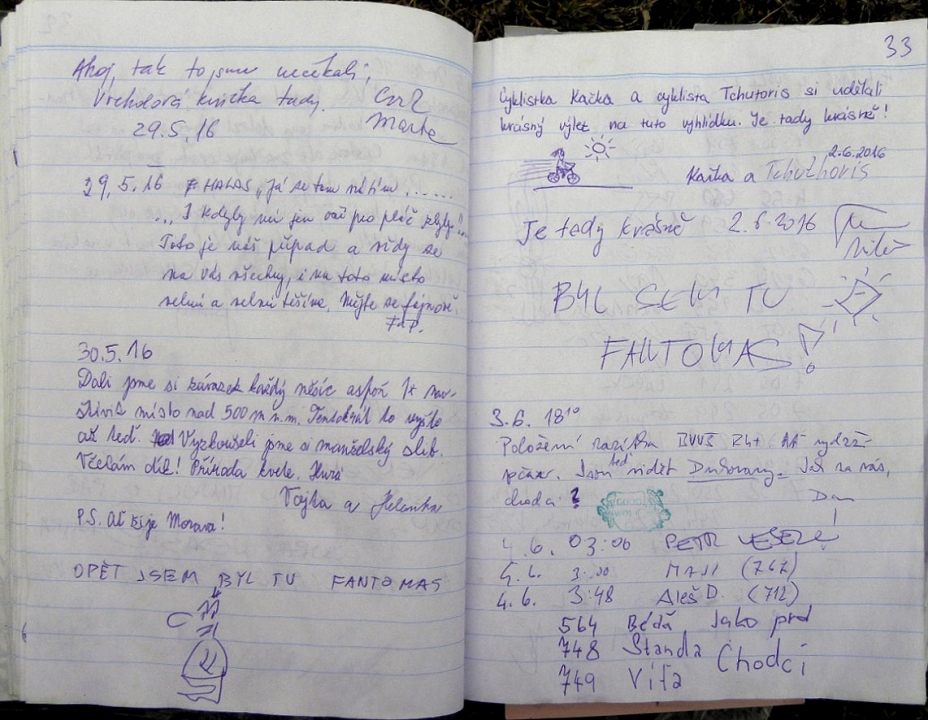 Ahoj, tak to jsme nečekali,
Vrcholová knížka tady.
Marta
29.5.16
29.5.16 F. HALAS, Já se tam vrátím ......
... I kdyby mi jen
Toto je náš případ a vždy se
na vás všechny, i na toto místo
velmi a velmi těšíme. Mějte se fajnově.
30.5.16
Dali jsme si závazek každý měsíc aspoň 1x nav-
štívit místo nad 500 m n.m. Tentokrát to vyšlo
až teď. Vyzkoušeli jsme si manželský slib.
Včelám dík! Příroda kvete. Hurá
Vojta a Helenka
P.S. Ať žije Morava!
OPĚT JSEM BYL TU FANTOMAS
33
Cyklistka Kačka a cyklista Tchutoris si udělali
krásný výlet na tuto vyhlídku. Je tady krásně!
2.6.2016
Kačka a Tchuthoris
Je tady krásně 2.6.2016
BYL SEM TU
FANTOMAS!
3.6. 18¹⁰
Položení
Jsou teď vidět Dukovany. Jak na nás,
chodci ?
Dan
4.6. 03:00 PETR VESELÝ
(767)
4.6. 3:48 Aleš D. (712)
564 Béďa Jako prd
748 Standa Chodci
749 Víťa